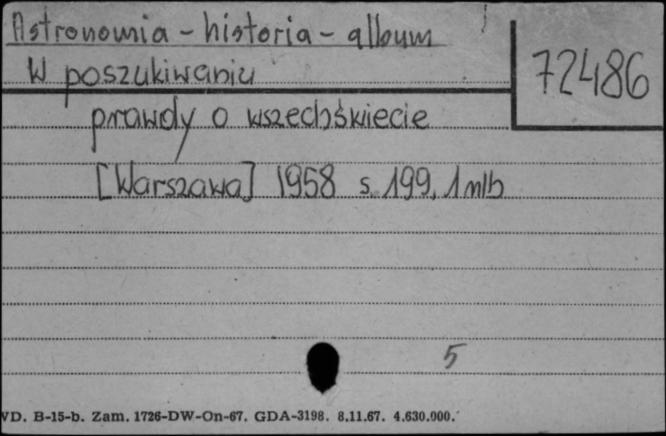 Astronomia - historia - album
72486
W poszukiwaniu
prawdy o wszechświecie
[Warszawa] 1958 s. 199, 1 nlb
5
VD. B-15-b. Zam. 1726-DW-On-67. GDA-3198. 8.11.67. 4.630.000.